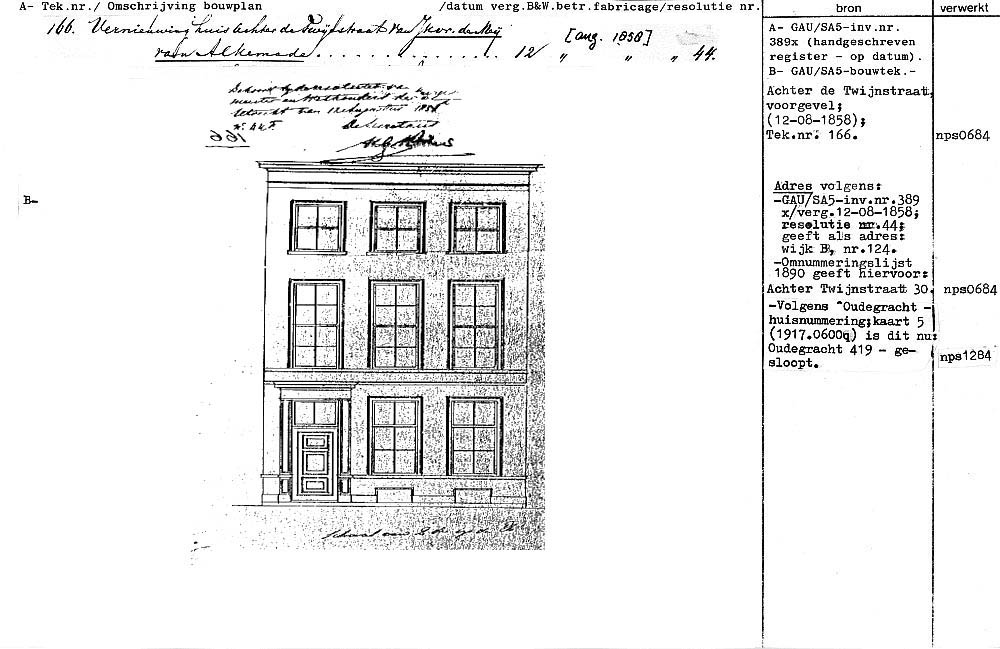 A- Tek.nr./ Omschrijving bouwplan /datum verg.B&W.betr.fabricage/resolutie nr.
bron
verwerkt
166. Vernieuwing huis Achter de Twijnstraat van Jkvr. de Meij
van Alkemade . . . . . . . . . . . 12 " " " 44.
[aug. 1858]
Utrecht van 12 Augustus 1858
No. 44 F.
De Secretaris
166
B-
A- GAU/SA5-inv.nr.
389x (handgeschreven
register - op datum).
B- GAU/SA5-bouwtek.-
Achter de Twijnstraat,
voorgevel;
(12-08-1858);
Tek.nr. 166.
nps0684
Adres volgens:
-GAU/SA5-inv.nr.389
x/verg.12-08-1858;
resolutie nr.44;
geeft als adres:
wijk B, nr.124.
-Omnummeringslijst
1890 geeft hiervoor:
Achter Twijnstraat 30.
nps0684
-Volgens "Oudegracht -
huisnummering;kaart 5
(1917.0600q) is dit nu:
Oudegracht 419 - ge-
sloopt.
nps1284